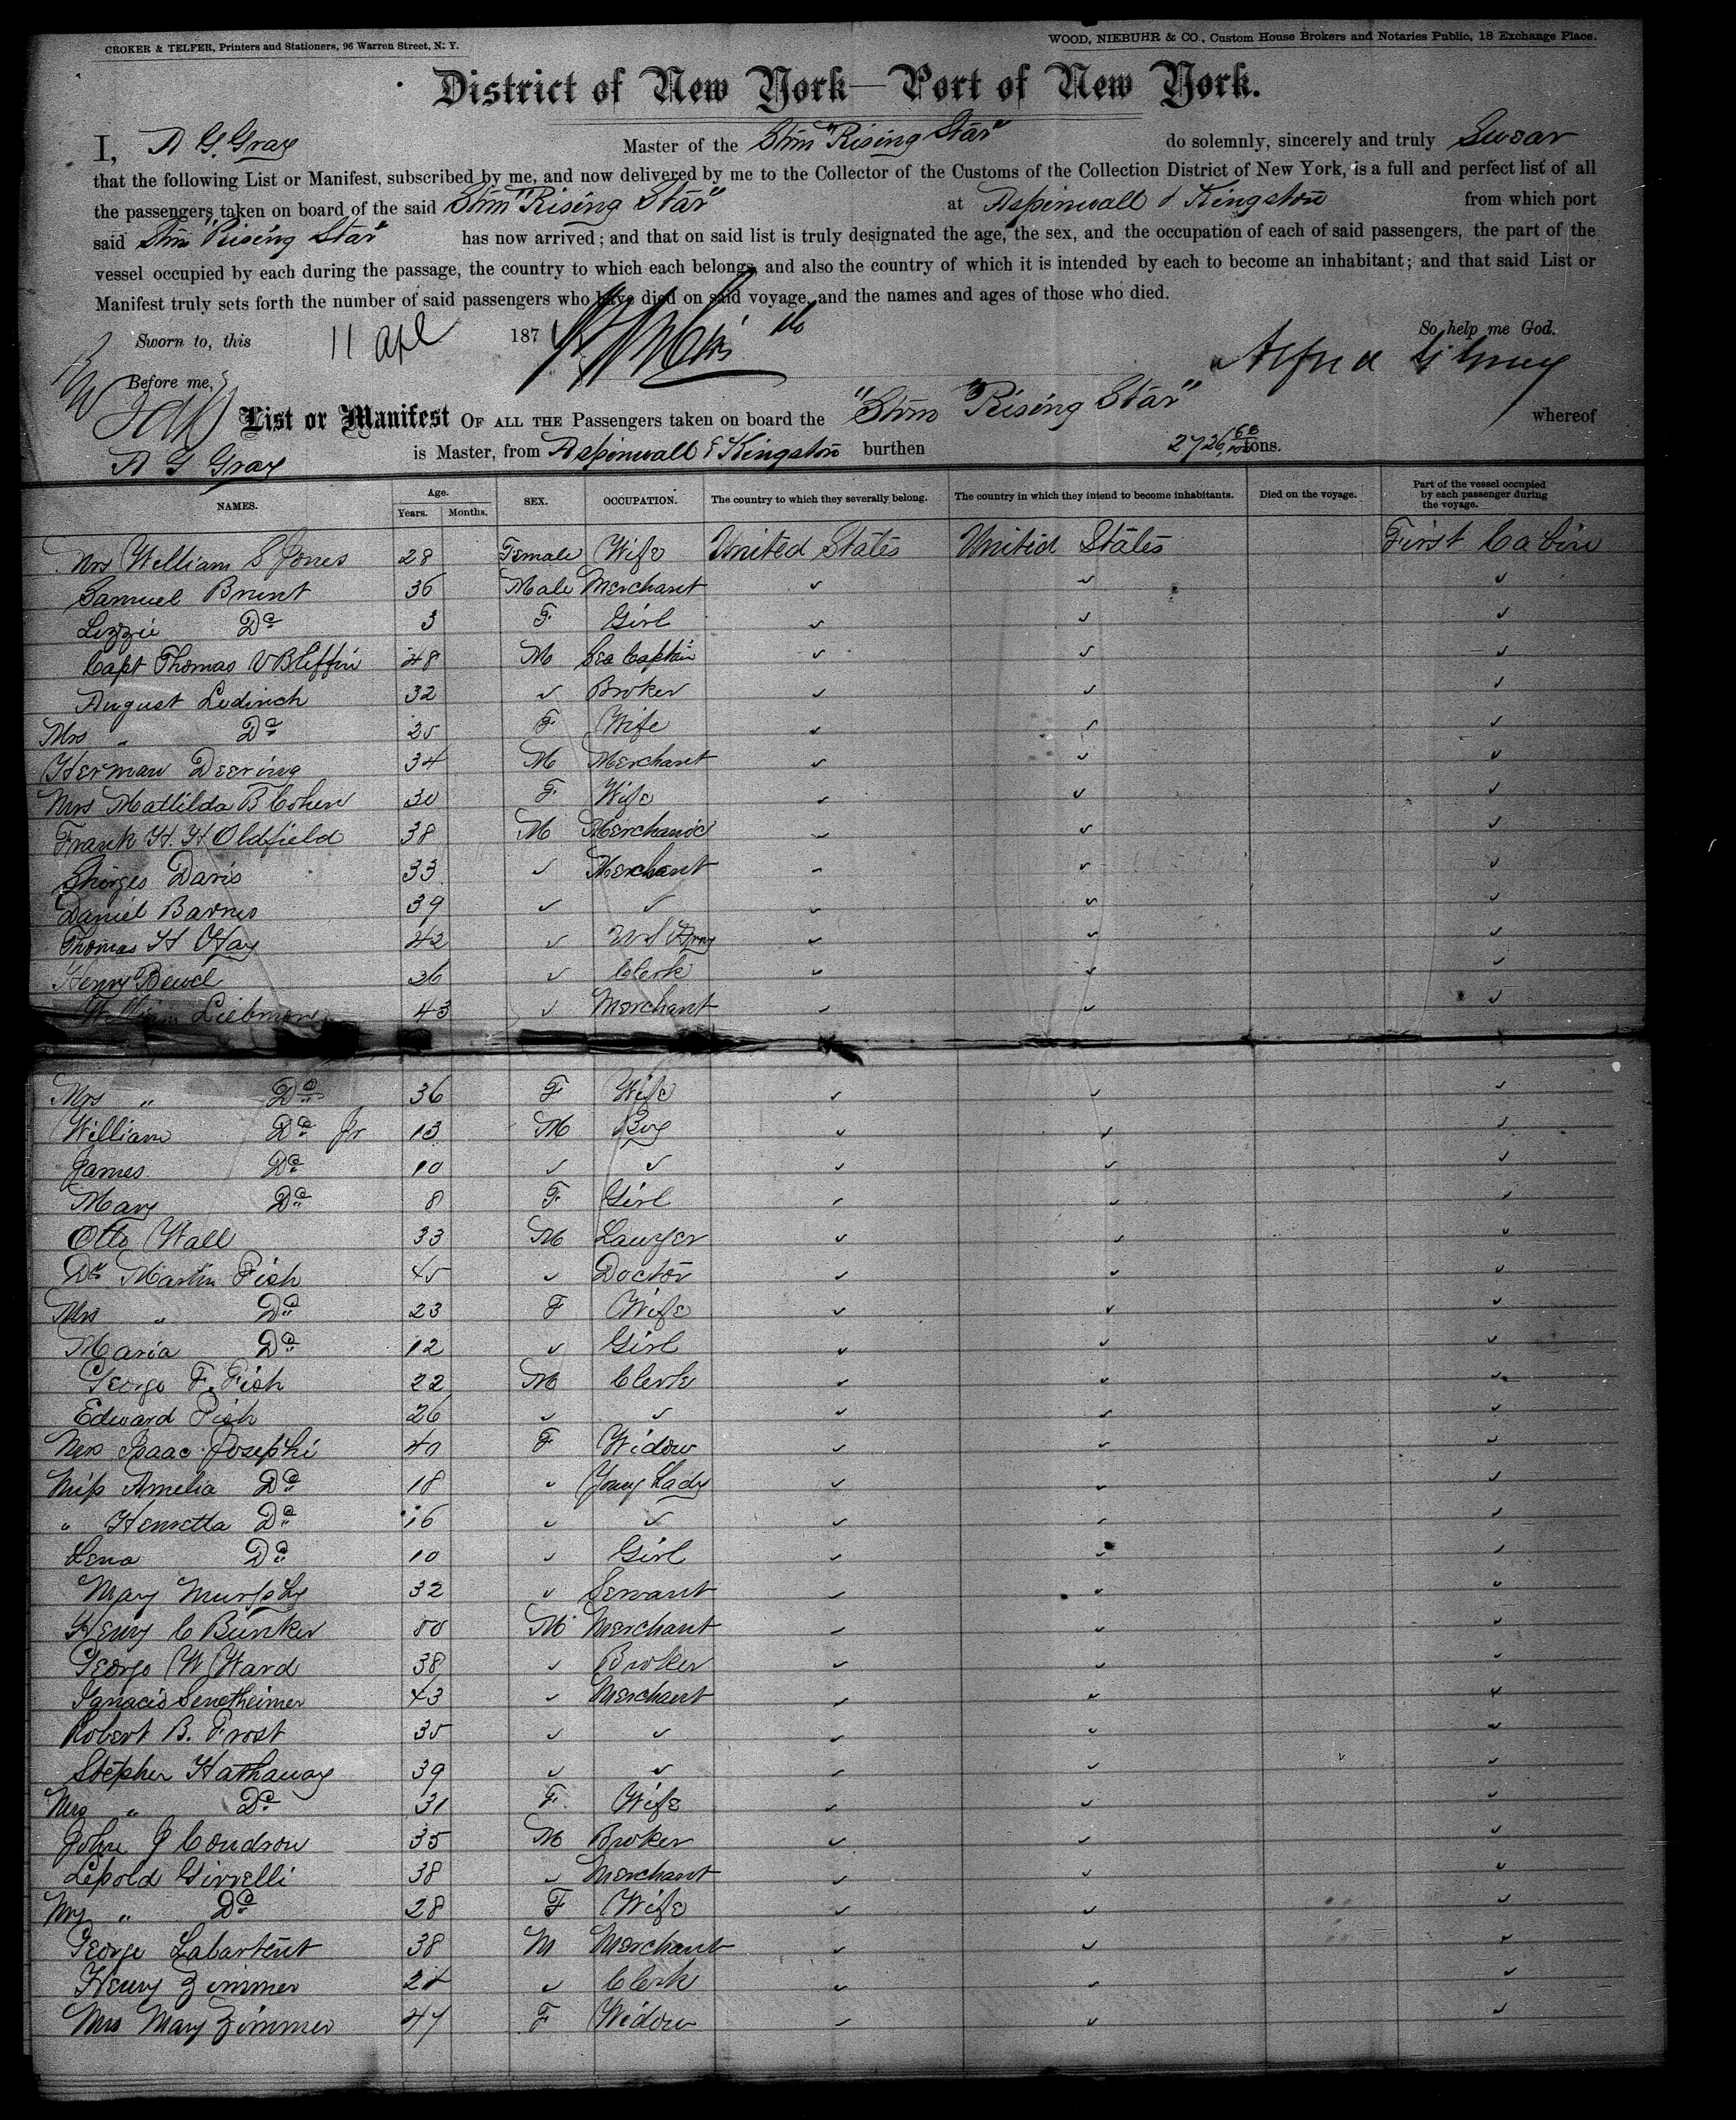 CROKER & TELFER, Printers and Stationers, 96 Warren Street, N. Y.
WOOD, NIEBUHR & CO., Custom House Brokers and Notaries Public, 18 Exchange Place.
District of New York—Port of New York.
I, A G. Gray Master of the Stm "Rising Star" do solemnly, sincerely and truly Swear
that the following List or Manifest, subscribed by me, and now delivered by me to the Collector of the Customs of the Collection District of New York, is a full and perfect list of all
the passengers taken on board of the said Stm "Rising Star" at Aspinwall & Kingston from which port
said Stm "Rising Star" has now arrived; and that on said list is truly designated the age, the sex, and the occupation of each of said passengers, the part of the
vessel occupied by each during the passage, the country to which each belongs, and also the country of which it is intended by each to become an inhabitant; and that said List or
Manifest truly sets forth the number of said passengers who have died on said voyage, and the names and ages of those who died.
Sworn to, this 11 Apl 187 So help me God.
Before me,
List or Manifest OF ALL THE Passengers taken on board the "Stm "Rising Star" whereof
A G Gray is Master, from Aspinwall & Kingston burthen 2726 68/100 tons.
NAMES. Age. Years. Months. SEX. OCCUPATION. The country to which they severally belong. The country in which they intend to become inhabitants. Died on the voyage. Part of the vessel occupied by each passenger during the voyage.
Mrs William S Jones 28 Female Wife United States United States First Cabin
Samuel Brunt 36 Male Merchant
Lizzie Do 3 F Girl
Capt Thomas V Bliffin 48 M Sea Captain
August Ludinch 32 Broker
Mrs " Do 25 F Wife
Herman Deering 34 M Merchant
Mrs Matilda B Cohen 30 F Wife
Frank H. H Oldfield 38 M Merchanic
Georges Davis 33 Merchant
Daniel Barnes 39
Thomas H Hay 42 U S Army
Henry 36 Clerk
William Liebmore 43 Merchant
Mrs " Do 36 F Wife
William Do Jr 13 M Boy
James Do 10
Mary Do 8 F Girl
Otto Wall 33 M Lawyer
Dr Martin Fish 45 Doctor
Mrs " Do 23 F Wife
Maria Do 12 Girl
George F. Fish 22 M Clerk
Edward Fish 26
Mrs Isaac Josephi 40 F Widow
Miss Amelia Do 18 Young Lady
" Henretta Do 16
Lena Do 10 Girl
Mary Murphy 32 Servant
Henry C Bunker 50 M Merchant
George W Ward 38 Broker
Ignacio Senetheimer 43 Merchant
Robert B. Frost 35
Stephen Hathaway 39
Mrs " Do 31 F Wife
John J Condron 35 M Broker
Lepold Girrelli 38 Merchant
Mrs " Do 28 F Wife
George Labartent 38 M Merchant
Henry Zimmer 24 Clerk
Mrs Mary Zimmer 47 F Widow